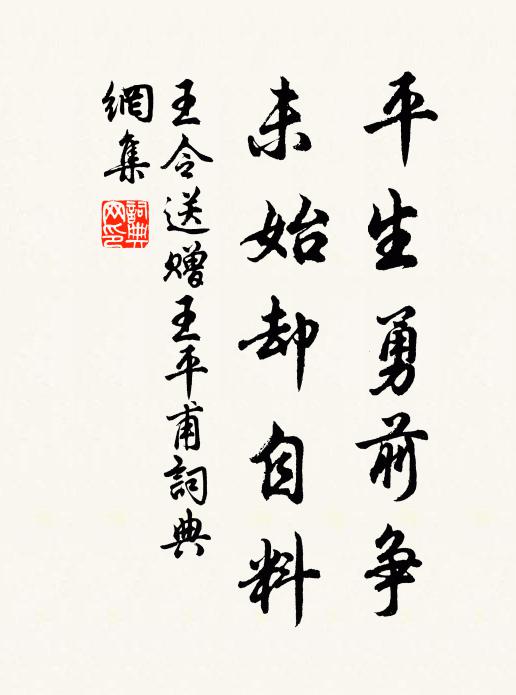 平生勇前争
未始却自料
王令送赠王平甫詞典
網集
詞典網印